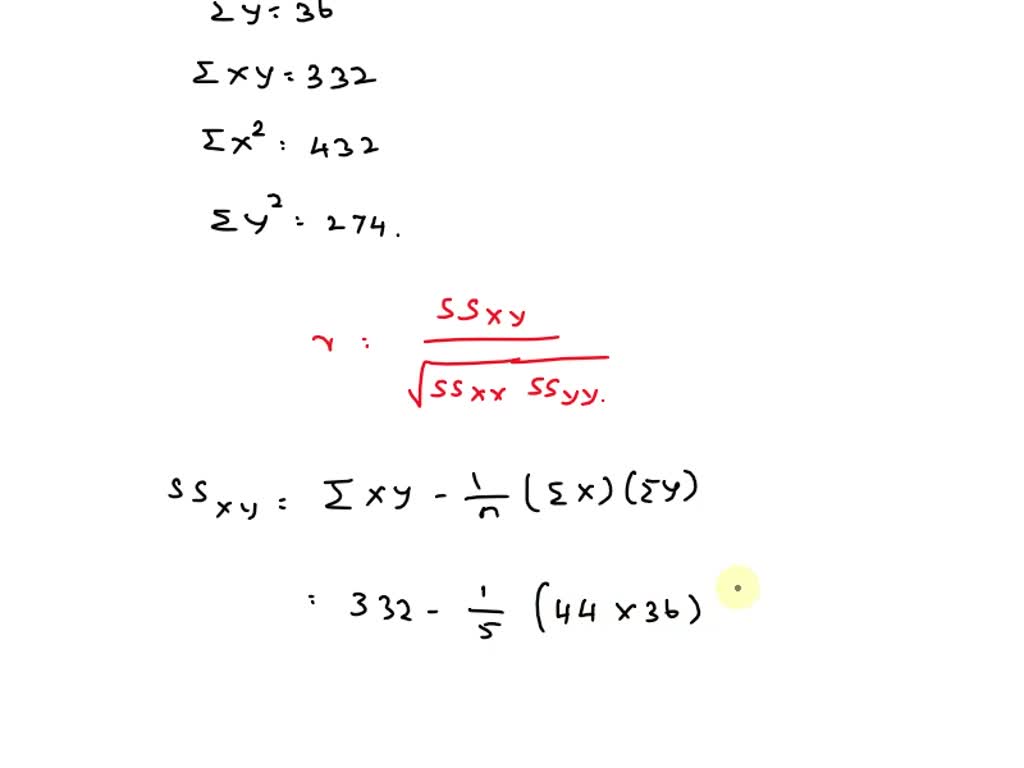 Σy = 36
Σxy = 332
Σx² = 432
Σy² = 274.
r = SSxy / √SSxx SSyy.
SSxy = Σxy - 1/n (Σx)(Σy)
= 332 - 1/5 (44 x 36)